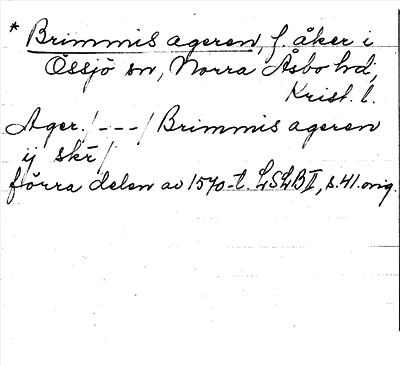 * Brimmis ageren, f. åker i
Össjö sn, Norra Åsbo hd,
Krist. l.
Ager. /---/ Brimmis ageren
ij skr̄ /
förra delen av 1570-t. LSLB II, s. 41. orig.